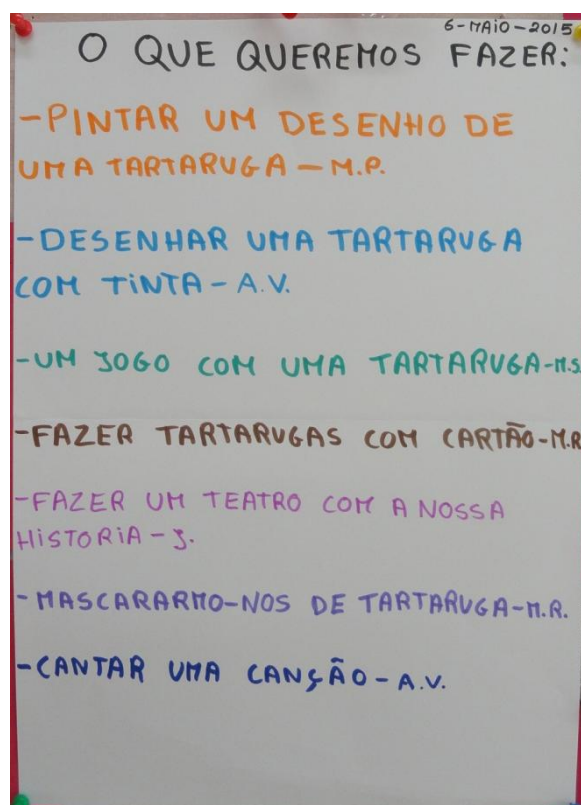 6-MAiO-2015
O QUE QUEREMOS FAZER:
-PINTAR UM DESENHO DE
UMA TARTARUGA - M.P.
-DESENHAR UMA TARTARUGA
COM TiNTA - A.V.
-UM JOGO COM UMA TARTARUGA-M.S.
-FAZER TARTARUGAS COM CARTÃO-M.R
-FAZER UM TEATRO COM A NOSSA
HiSTORiA - J.
-MASCARARMO-NOS DE TARTARUGA-M.R.
-CANTAR UMA CANÇÃO - A.V.